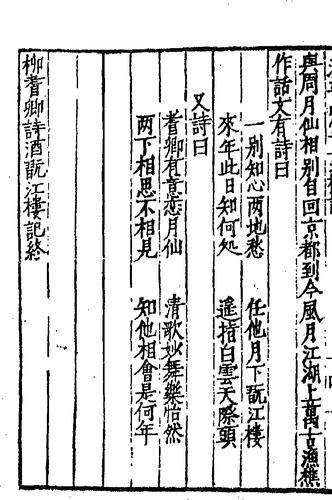 與周月仙相别自回京都到今風月江湖上萬古漁樵
作話文有詩曰
一别知心两地愁 任他月下翫江樓
來年此日知何処 遙指白雲天際頭
又詩曰
耆卿有意恋月仙 清歌妙舞樂怡然
两下相思不相見 知他相會是何年
柳耆卿詩酒翫江樓記終